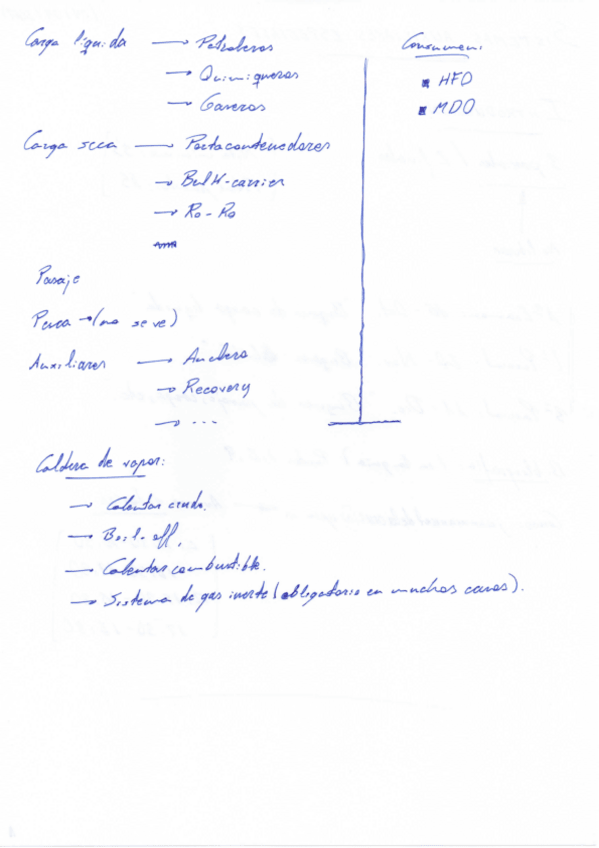 Carga líquida → Petroleros
→ Quimiqueros
→ Gaseros
Carga seca → Portacontenedores
→ Bulk-carrier
→ Ro-Ro
Pasaje
Pesca → (no se ve)
Auxiliares → Anclero
→ Recovery
→ ...
Consumen:
HFO
MDO
Caldera de vapor:
→ Calentar crudo.
→ Boil-off.
→ Calentar combustible.
→ Sistema de gas inerte (obligatorio en muchos casos).